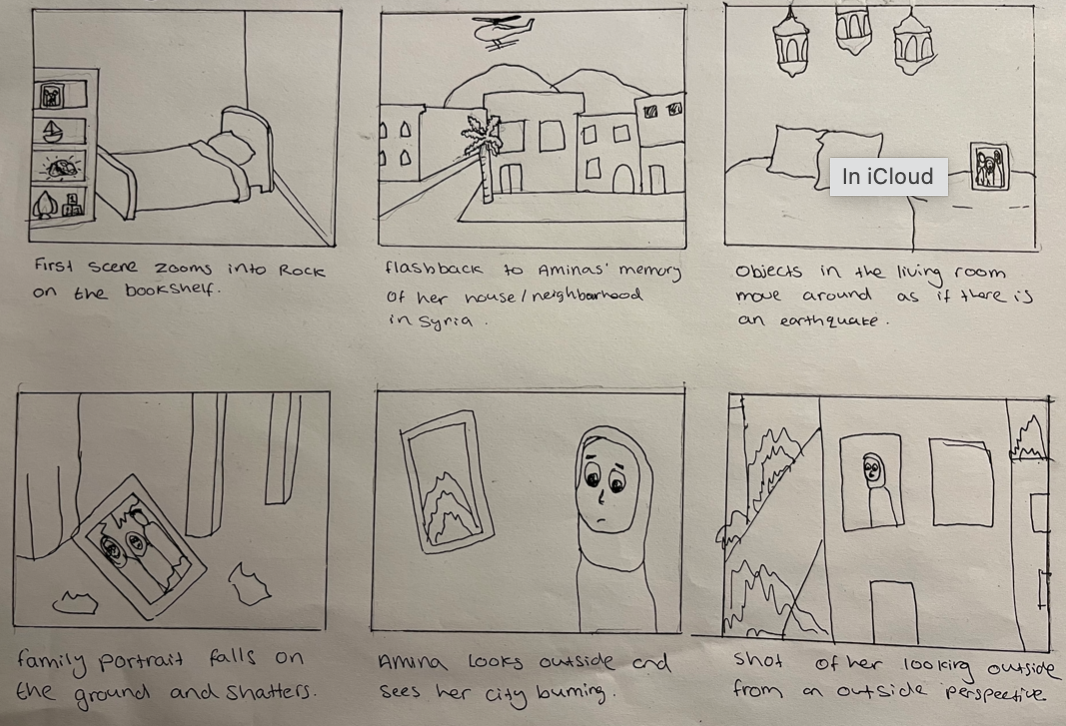 First scene zooms into Rock
on the bookshelf.
flashback to Aminas' memory
of her house/neighborhood
in Syria.
In iCloud
objects in the living room
move around as if there is
an earthquake.
family portrait falls on
the ground and shatters.
Amina looks outside and
sees her city burning.
Shot of her looking outside
from an outside perspective